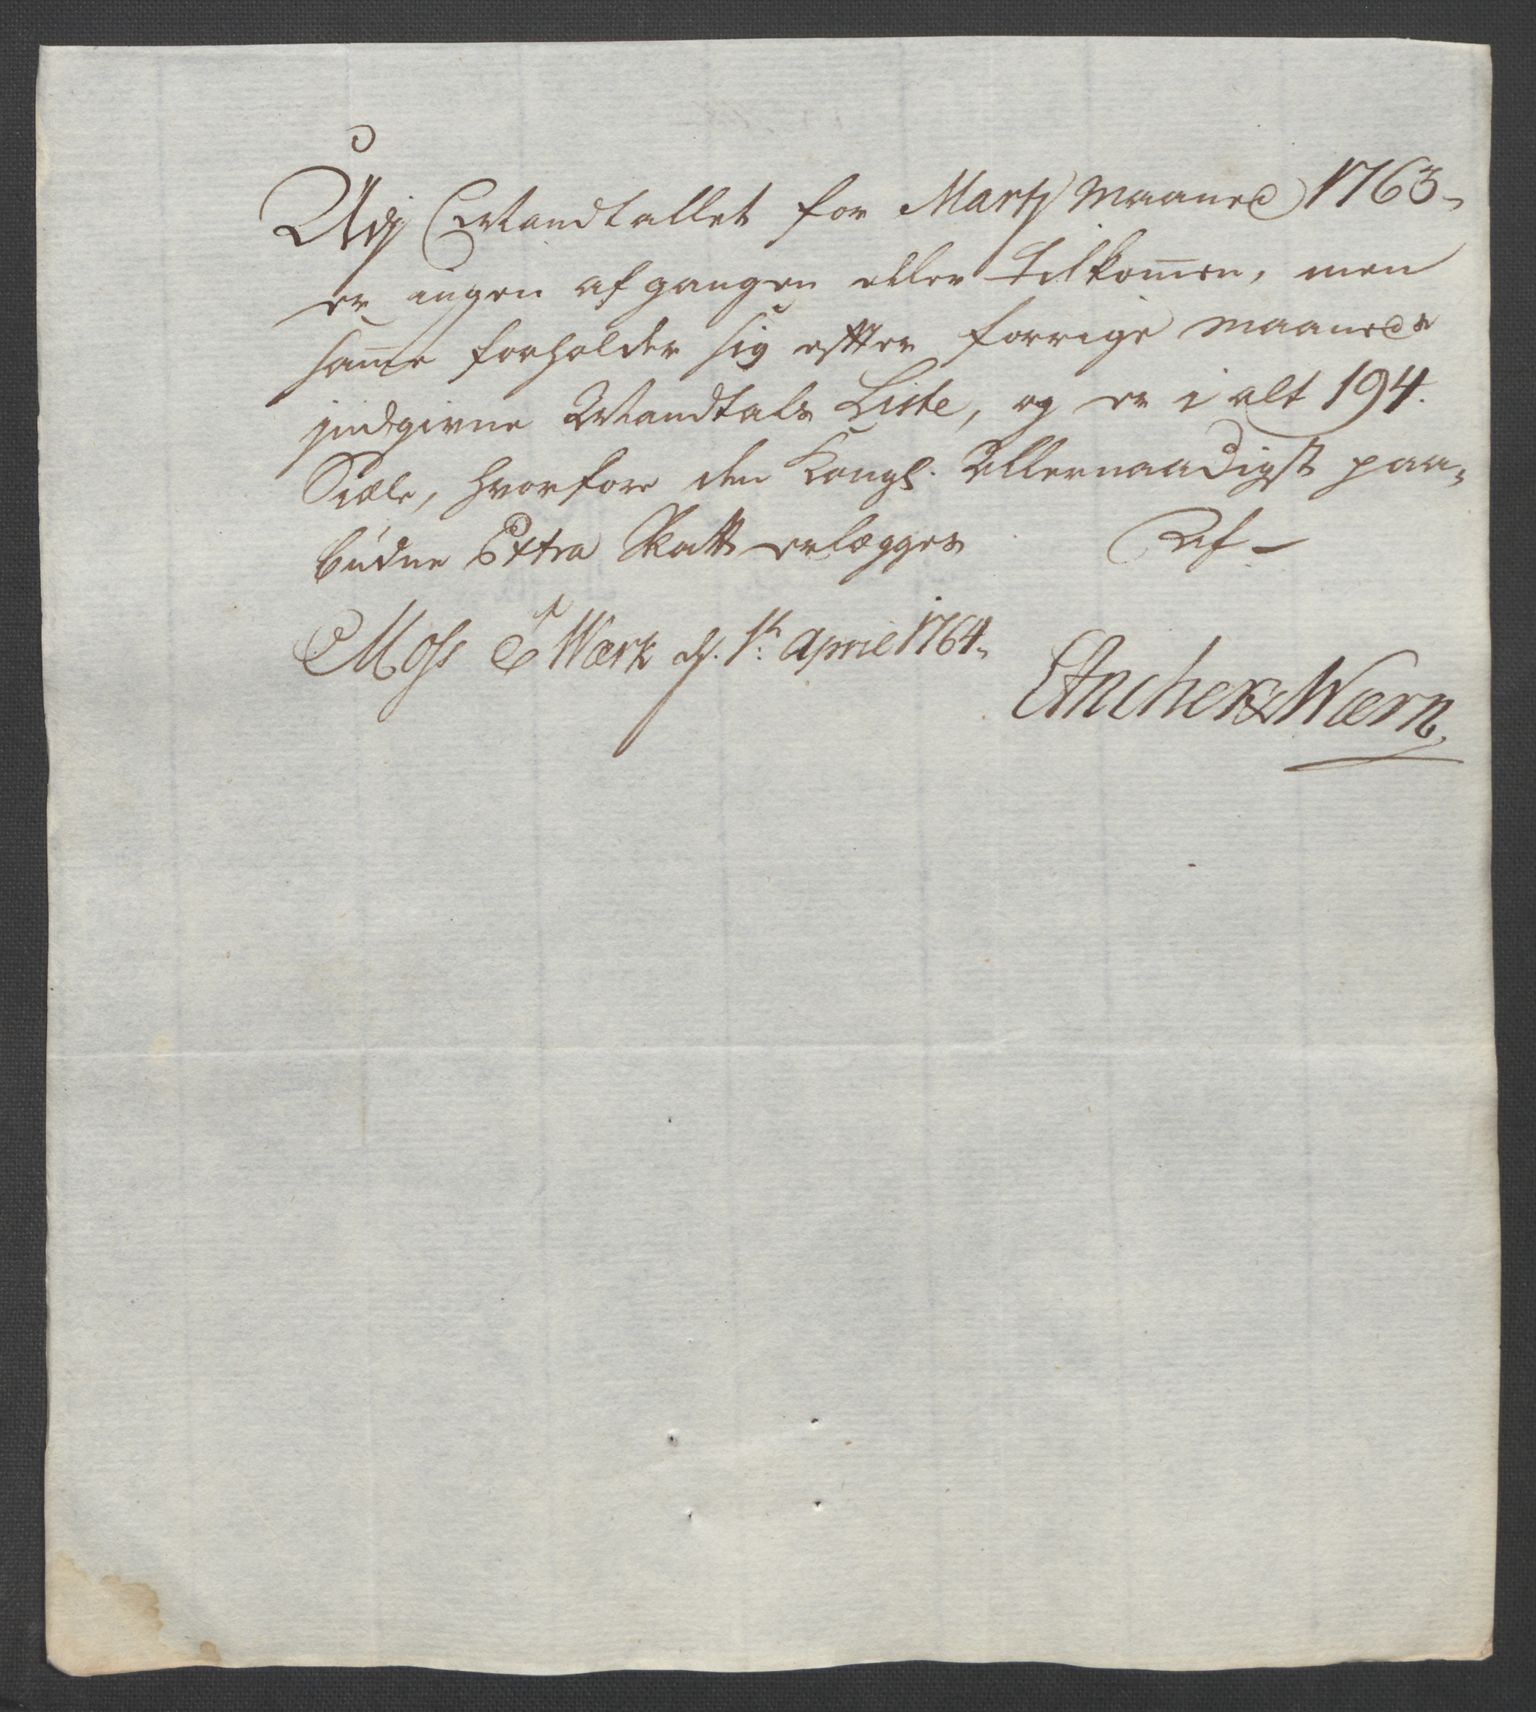 Udj Mandtallet for Martj Maaned 1763
er ingen afgangen eller tilkom̄en, men
sam̄e forholder sig efter forrige Maaneds
jndgivne Mandtals Liste, og er i alt 194.
Siæle, hvorfore den Kongl. Allernaadigst paa-
budne Extra Skatt erlægges Af
Moss Værk d. 1te April 1764.
Ancher & Wærn